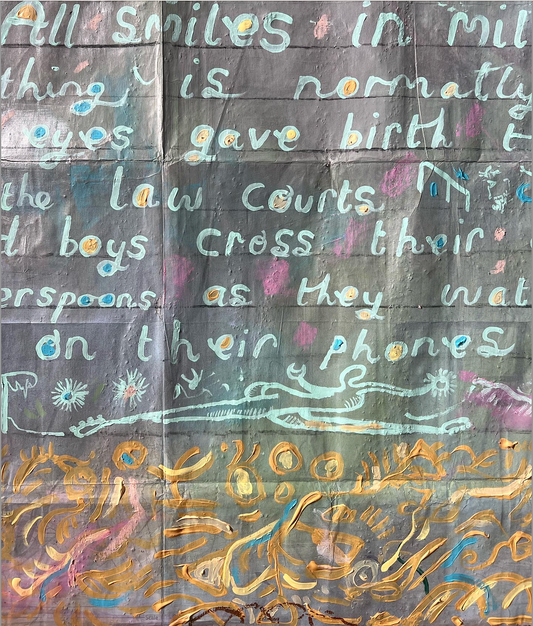 All smiles in mil
thing is normatly
eyes gave birth t
the law courts
d boys cross their
erspoons as they wat
on their phones